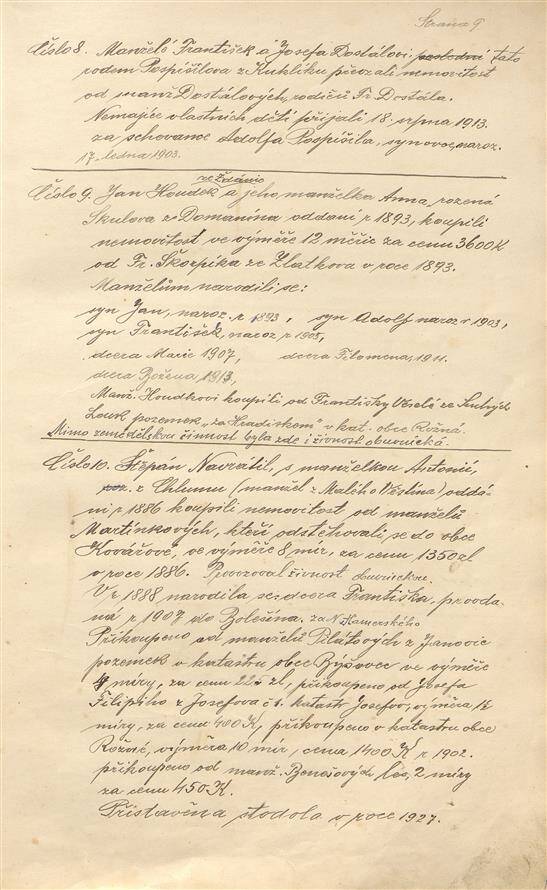 Strana 9
Číslo 8. Manželé František a Josefa Dostálovi poslední tato
rodem Pospíšilova z Kuklíku převzali nemovitost
od manž. Dostálových, rodičů Fr. Dostála.
Nemajíce vlastních dětí přijali 18. srpna 1913.
za schovance Adolfa Pospíšila, syn ovce, naroz.
17. ledna 1903.
ze Ždánic
Číslo 9. Jan Houdek a jeho manželka Anna, rozená
Skulova z Domanína oddaní r 1893, koupili
nemovitost ve výměře 12 měřic za cenu 3600K
od Fr. Škorpíka ze Zlatkova v roce 1893.
Manželům narodili se:
syn Jan, naroz. r 1893, syn Adolf naroz r 1903,
syn František, naroz r 1905,
dcera Marie 1907, dcera Filomena, 1911.
dcera Božena 1913,
Manž. Houdkovi koupili od Františky Veselé ze
Louk pozemek „za Hradiskem" v kat. obce Rožná.
Mimo zemědělskou činnost byla zde i živnost obuvnická.
Číslo 10. Štěpán Navrátil, s manželkou Antonií,
z Chlumu (manžel z Malého oddá-
ni r 1886 koupili nemovitost od manželů
Martinkových, kteří odstěhovali se do obce
Kovářové, ve výměře 8 mír, za cenu 1350zl
v roce 1886. Provozoval živnost obuvnickou.
V r 1888 narodila se: dcera Františka, provda-
ná r 1907 do Bolešína. za N. Kamerského
Přikoupeno od manželů Pilátových z Janovic
pozemek v katastru obce Býšovce ve výměře
4 míry, za cenu 225 zl, přikoupeno od Josefa
Filipského z Josefova č 1. katastr Josefov, výměra 1½
míry, za cenu 400K, přikoupeno v katastru obce
Rožné, výměra 10 mír, cena 1400 K r 1902.
přikoupeno od manž. Benešových les, 2 míry
za cenu 450 K.
Přistavěna stodola v roce 1927.